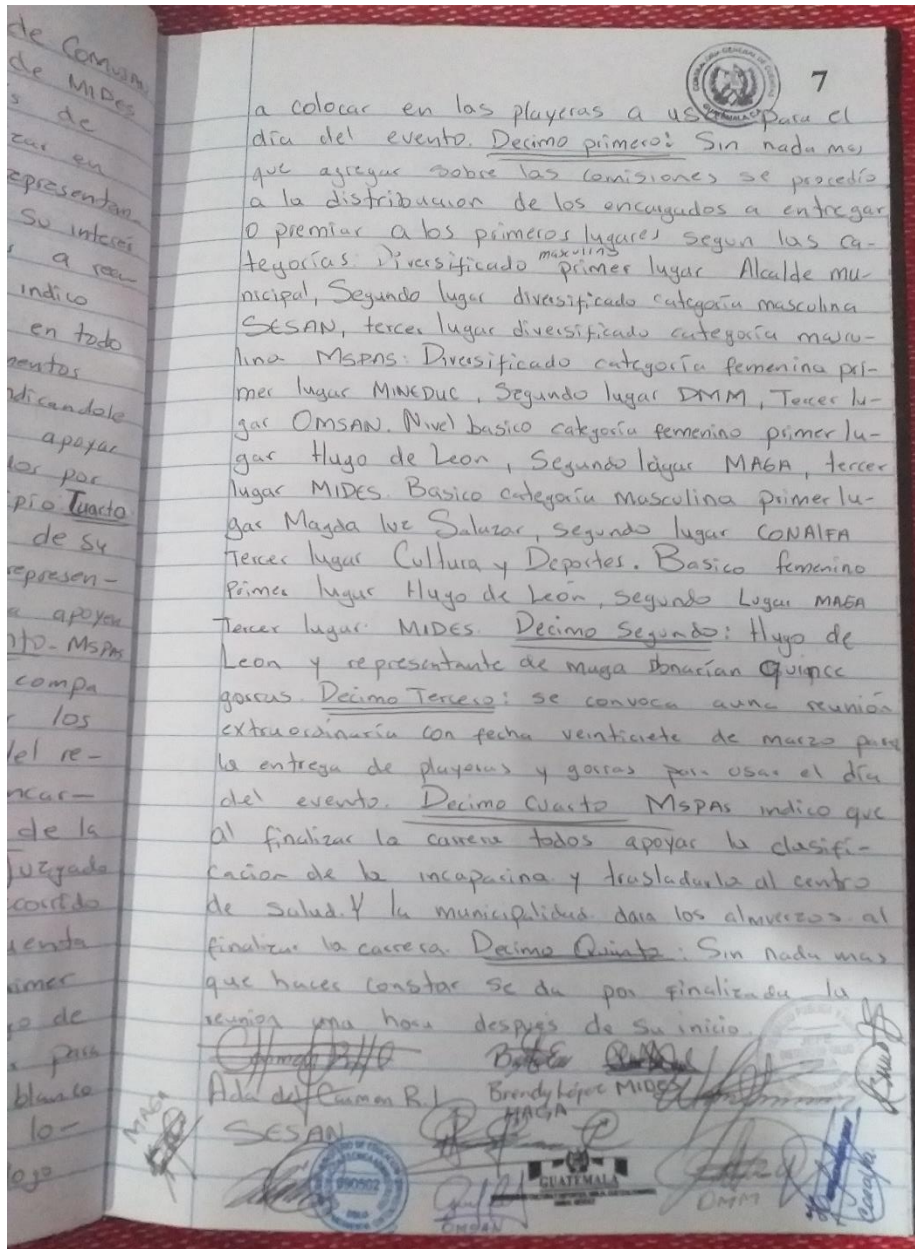 de Comuni
de MIDES
s de
car en
epresentan
su interes
a reu
indico
en todo
mentos
ndicandole
apoyar
los por
pio Tuarto
de su
represen-
a apoyen
nto- MSPAS
compa
los
del re-
ncar-
de la
Juzgado
corrido
uenta
imer
o de
para
blanco
lo-
ogo
7
a colocar en las playeras a us para el
día del evento. Decimo primero: Sin nada mas
que agregar sobre las comisiones se procedio
a la distribucion de los encargados a entregar
o premiar a los primeros lugares segun las ca-
tegorías. Diversificado masculino primer lugar Alcalde mu-
nicipal, Segundo lugar diversificado categoría masculina
SESAN, tercer lugar diversificado categoría mascu-
lina MSPAS. Diversificado categoría femenina pri-
mer lugar MINEDUC, Segundo lugar DMM, Tercer lu-
gar OMSAN. Nivel basico categoría femenino primer lu-
gar Hugo de Leon, Segundo lugar MAGA, tercer
lugar MIDES. Basico categoría masculina primer lu-
gar Magda luz Salazar, segundo lugar CONALFA
Tercer lugar Cultura y Deportes. Basico femenino
Primer lugar Hugo de León, segundo Lugar MAGA
Tercer lugar MIDES. Decimo Segundo: Hugo de
Leon y representante de maga donarían quince
gorras. Decimo Tercero: se convoca auna reunión
extraordinaria con fecha veinticiete de marzo para
la entrega de playeras y gorras para usar el día
del evento. Decimo Cuarto MSPAS indico que
al finalizar la carrera todos apoyar la clasifi-
cacion de la incaparina y trasladarla al centro
de salud. Y la municipalidad dara los almuerzos al
finalizar la carrera. Decimo Quinto: Sin nada mas
que hacer constar se da por finalizada la
reunion una hora despues de su inicio.
Ada del Carmen R.L
Brendy López MIDES
MAGA
MAGA
SESAN
GUATEMALA
OMSAN
DMM